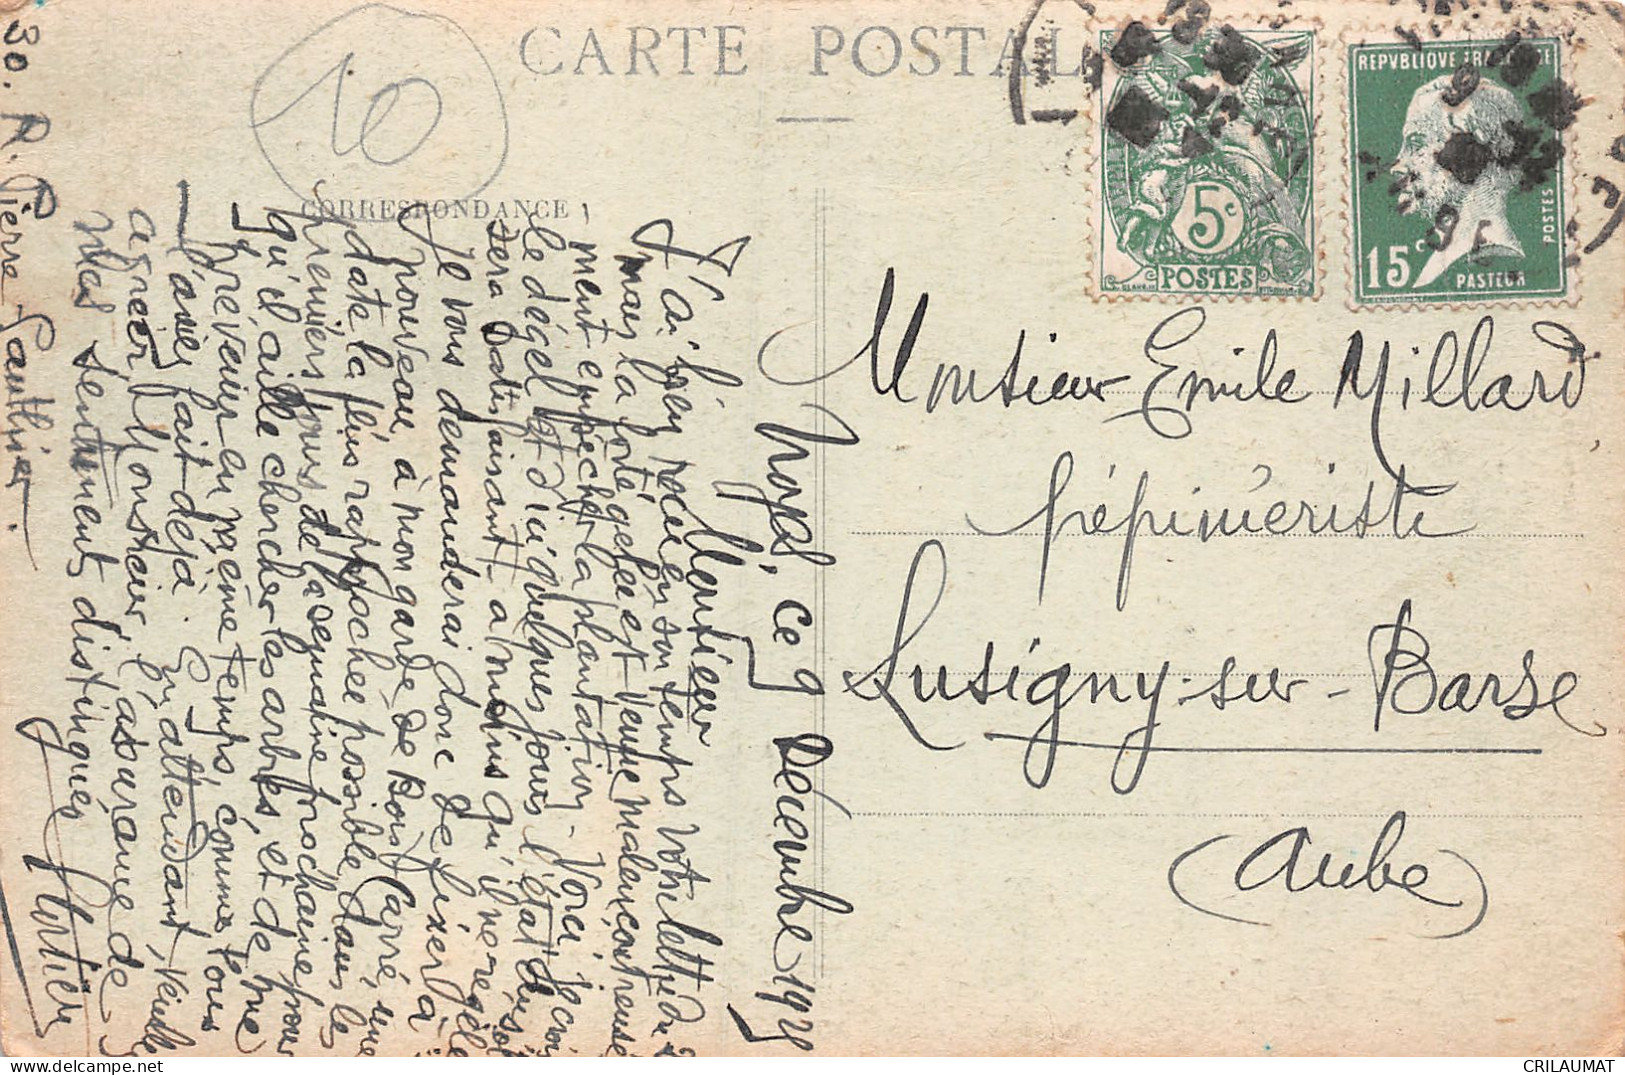 CARTE POSTALE
CORRESPONDANCE
10
5c
POSTES
REPVBLIQVE FRANÇAISE
15c
POSTES
PASTEUR
Monsieur Emile Millard
pépiniériste
Lusigny-sur-Barse
(Aube)
ce 9 Décembre 1925
Monsieur
J'ai bien reçu en son temps votre lettre
mais la forte gelée est venue malencontreuse-
ment empêcher la plantation. Voici je crois
le dégel et d'ici quelques jours l'état du sol
sera satisfaisant - à moins qu'il ne regèle
Je vous demanderai donc de fixer à
nouveau à mon garde de Bois Carré, une
date la plus rapprochée possible, dans les
premiers jours de la semaine prochaine pour
qu'il aille chercher les arbres, et de me
prévenir en même temps, comme vous
l'aviez fait déjà. En attendant, veuillez
agréer Monsieur, l'assurance de
mes sentiments distingués
30. R. Pierre Gauthier.
CRILAUMAT